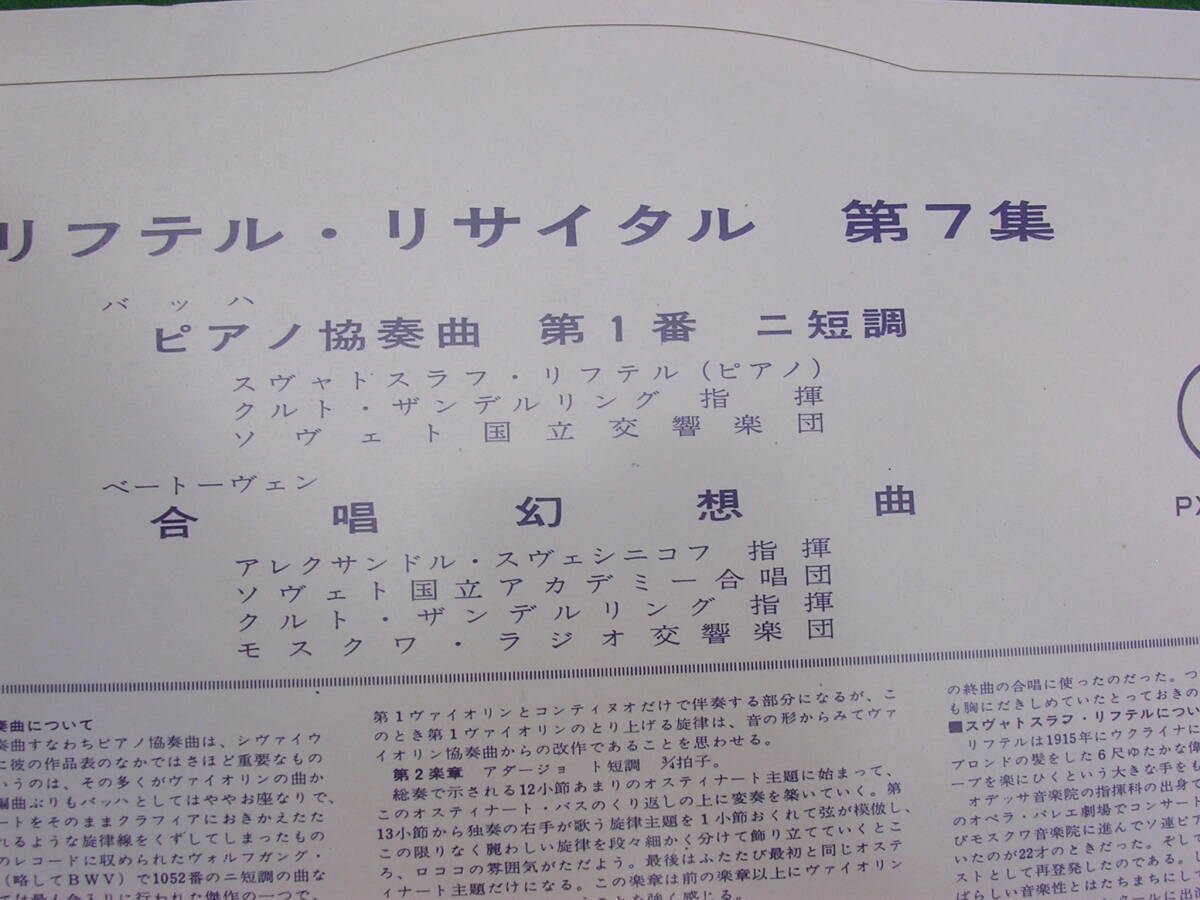 リフテル・リサイタル 第7集
バッハ
ピアノ協奏曲 第1番 ニ短調
スヴャトスラフ・リフテル(ピアノ)
クルト・ザンデルリング 指揮
ソヴェト国立交響楽団
ベートーヴェン
合唱幻想曲
PX
アレクサンドル・スヴェシニコフ 指揮
ソヴェト国立アカデミー合唱団
クルト・ザンデルリング 指揮
モスクワ・ラジオ交響楽団
奏曲について
奏曲すなわちピアノ協奏曲は、シヴァイウ
に彼の作品表のなかではさほど重要なもの
いうのは、その多くがヴァイオリンの曲か
編曲ぶりもバッハとしてはややお座なりで、
ートをそのままクラフィアにおきかえたた
れるような旋律線をくずしてしまったもの
のレコードに収められたヴォルフガング・
(略してBWV)で1052番のニ短調の曲な
ては最も念入りに行われた傑作の一つで、
第1ヴァイオリンとコンティヌオだけで伴奏する部分になるが、こ
のとき第1ヴァイオリンのとり上げる旋律は、音の形からみてヴァ
イオリン協奏曲からの改作であることを思わせる。
第2楽章 アダージョ ト短調 ¾拍子。
総奏で示される12小節あまりのオスティナート主題に始まって、
このオスティナート・バスのくり返しの上に変奏を築いていく。第
13小節から独奏の右手が歌う旋律主題を1小節おくれて弦が模倣し、
この限りなく麗わしい旋律を段々細かく分けて飾り立てていくとこ
ろ、ロココの雰囲気がただよう。最後はふたたび最初と同じオステ
ィナート主題だけになる。この楽章は前の楽章以上にヴァイオリン
ことを強く感じる。
の終曲の合唱に使ったのだった。つ
も胸にだきしめていたとっておきの
■スヴャトスラフ・リフテルについ
リフテルは1915年にウクライナに
ブロンドの髪をした6尺ゆたかな偉
ープを楽にひくという大きな手をも
オデッサ音楽院の指揮科の出身で
のオペラ・バレエ劇場でコンサート
びモスクワ音楽院に進んでソ連ピア
いたのが22才のときだった。そし
ストとして再登発したのである。
ばらしい音楽性とはたちまちにして
クールに出演